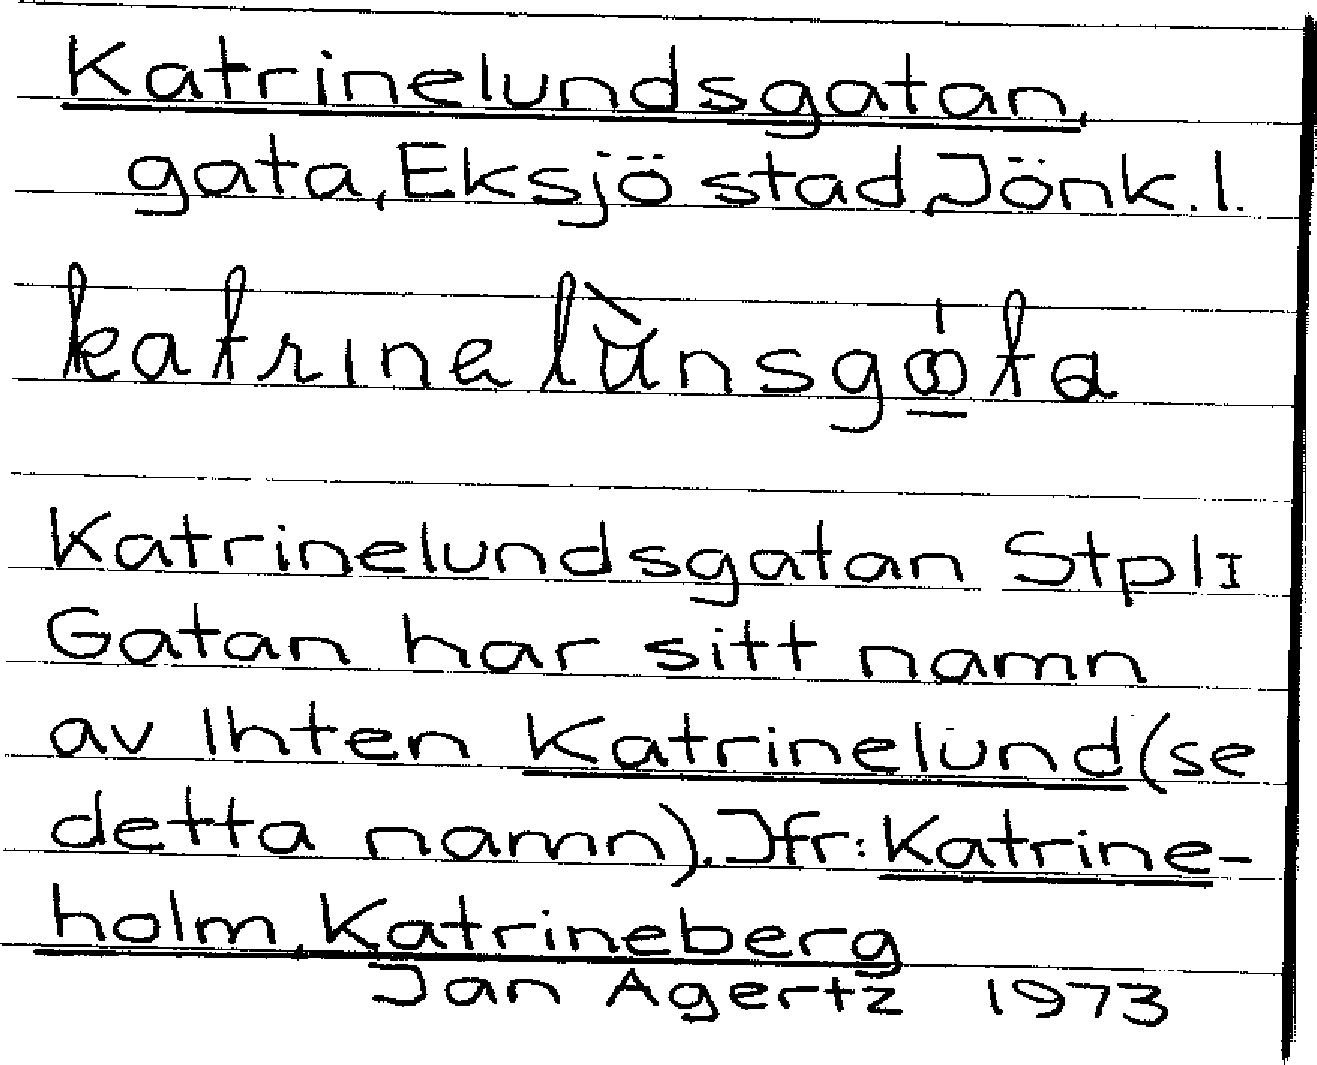 Katrinelundsgatan,
gata, Eksjö stad, Jönk. l.
katrinelùnsgọ́ta
Katrinelundsgatan Stpl I
Gatan har sitt namn
av lhten Katrinelund (se
detta namn). Jfr: Katrine-
holm, Katrineberg
Jan Agertz 1973